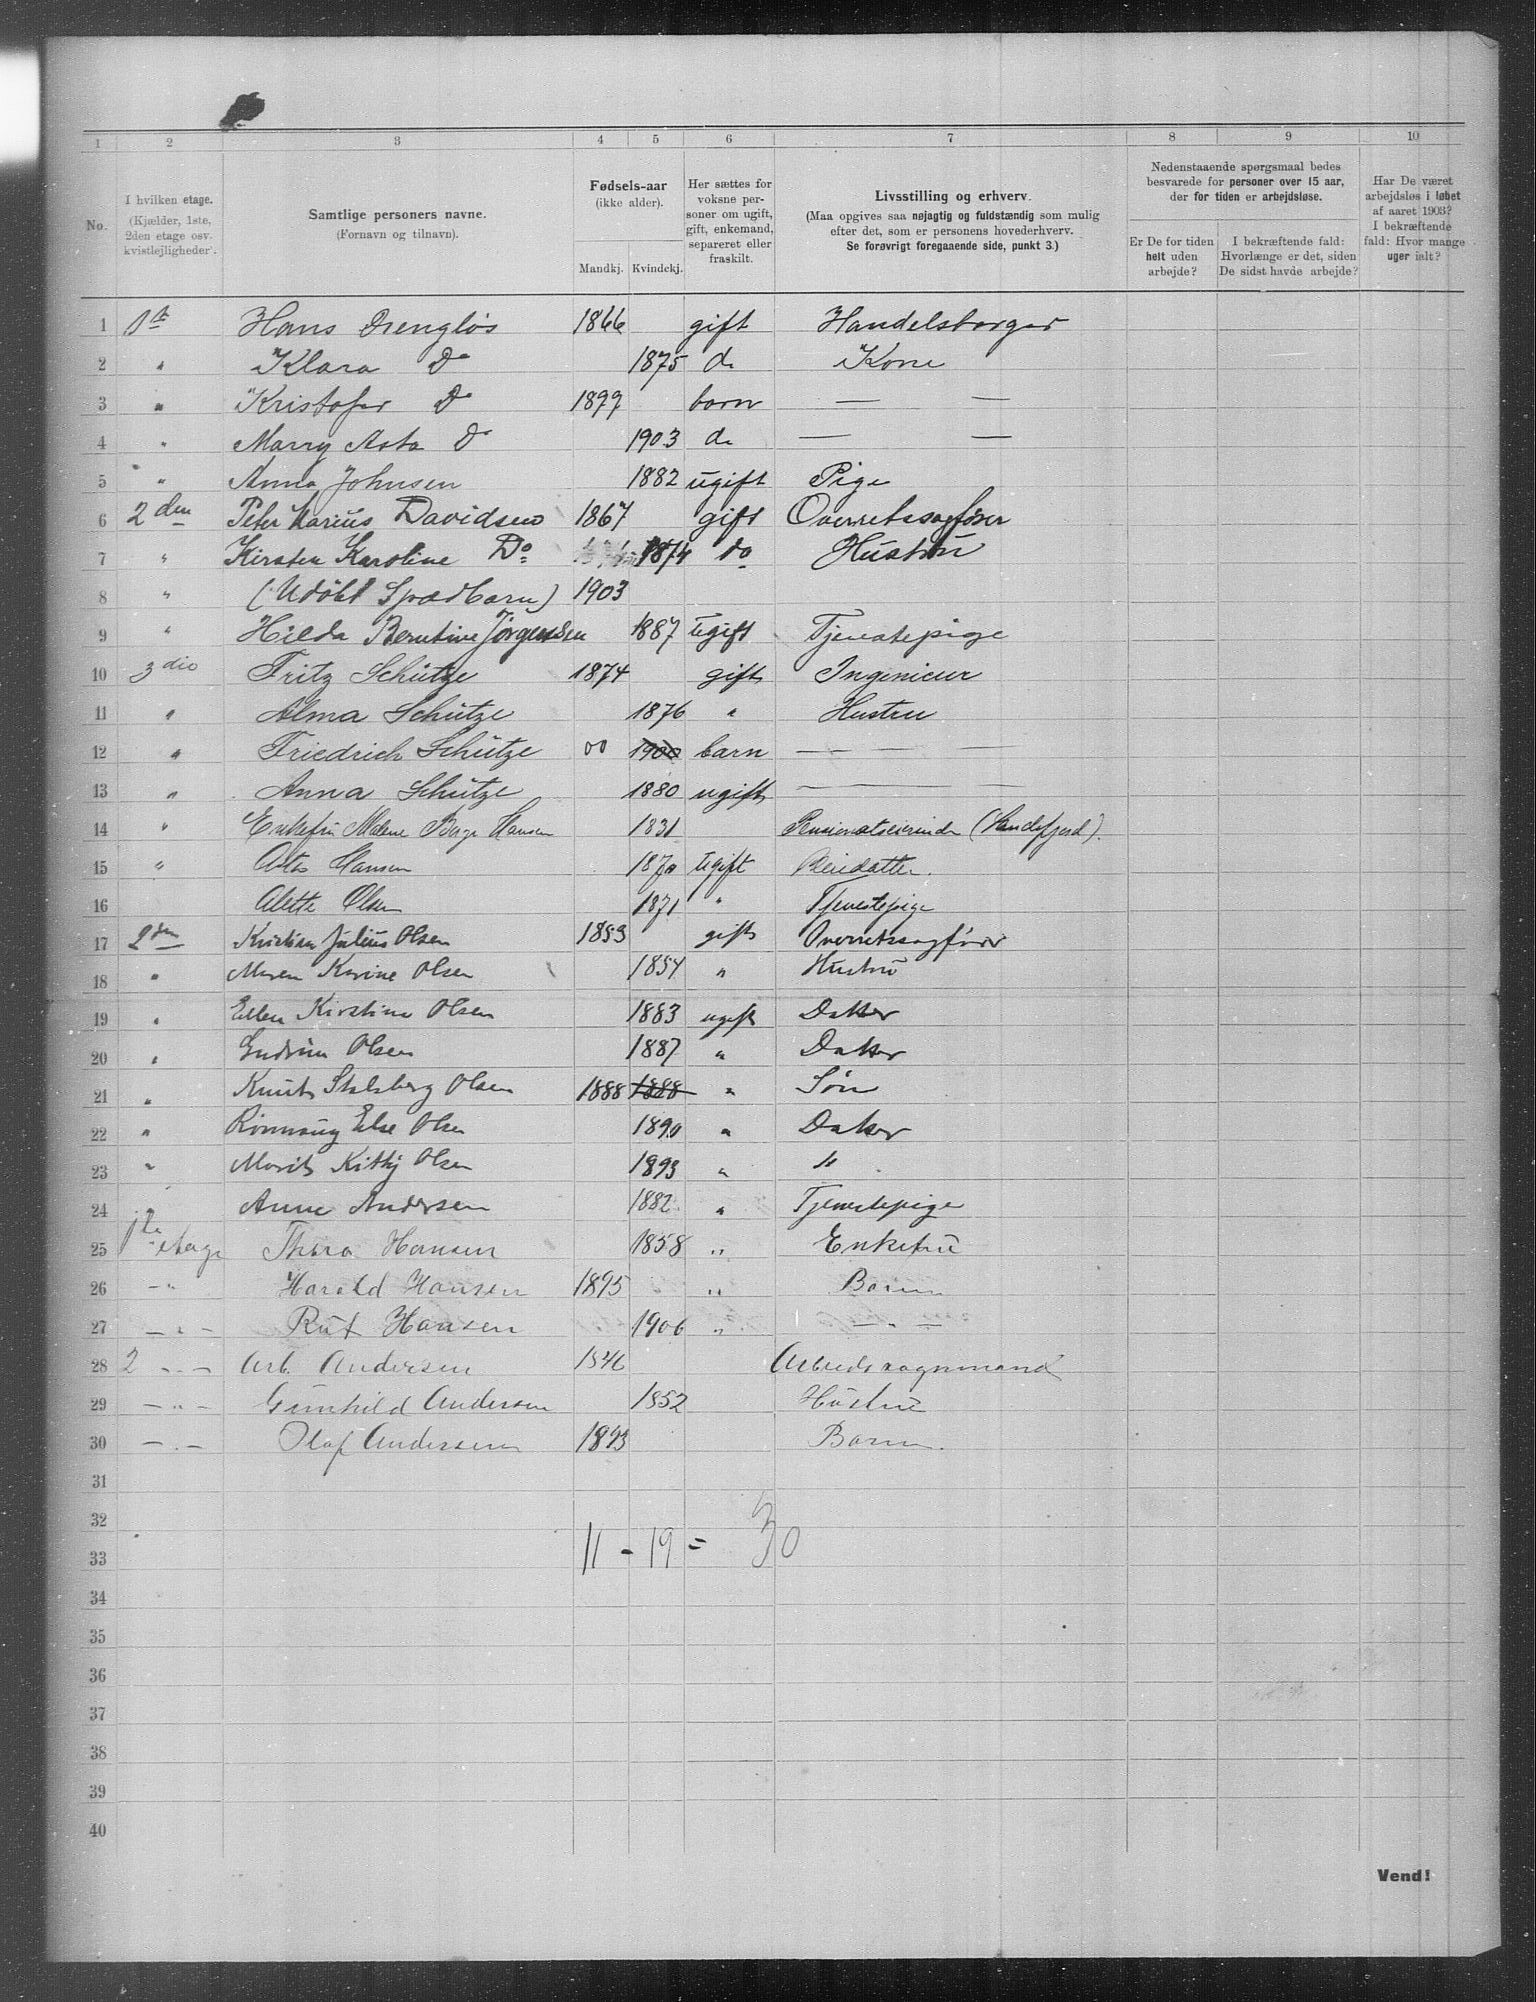 1 2 3 4 5 6 7 8 9 10
No.
I hvilken etage.
(Kjælder, 1ste,
2den etage osv.
kvistlejligheder).
Samtlige personers navne.
(Fornavn og tilnavn).
Fødsels-aar
(ikke alder).
Mandkj. Kvindekj.
Her sættes for
voksne per-
soner om ugift,
gift, enkemand,
separeret eller
fraskilt.
Livsstilling og erhverv.
(Maa opgives saa nøjagtig og fuldstændig som mulig
efter det, som er personens hovederhverv.
Se forøvrigt foregaaende side, punkt 3.)
Nedenstaaende spørgsmaal bedes
besvarede for personer over 15 aar,
der for tiden er arbejdsløse.
Er De for tiden
helt uden
arbejde?
I bekræftende fald:
Hvorlænge er det, siden
De sidst havde arbejde?
Har De været
arbejdsløs i løbet
af aaret 1903?
I bekræftende
fald: Hvor mange
uger ialt?
1 Hans Drengløs 1866 gift Handelsborger
2 " Klara Do 1875 do Kone
3 " Kristofer Do 1899 barn — —
4 " Marry Asta Do 1903 do — —
5 " Anna Johnsen 1882 ugift Pige
6 2den Peter Marius Davidsen 1867 gift Overretssagfører
7 " Kirsten Karoline Do 1874 do Hustru
8 " (Udøbt Spædbarn) 1903
9 " Hilda Berntine Jørgensen 1887 ugift Tjenestepige
10 3die Fritz Schütze 1874 gift Ingenieur
11 " Alma Schütze 1876 " Hustru
12 " Friedrich Schütze 00 1900 barn — — —
13 " Anna Schütze 1880 ugift — — —
14 " Enkefru Malene Hansen 1831 Pensionatseierinde (Sandefjord).
15 " Asta Hansen 1870 ugift Pleiedatter.
16 Alette Olsen 1871 " Tjenestepige
17 2den Kristian Julius Olsen 1853 gift Overretssagfører
18 " Maren Karine Olsen 1854 " Hustru
19 " Ellen Kirstine Olsen 1883 ugift Datter
20 " Gudrun Olsen 1887 " Datter
21 " Knut Stalsberg Olsen 1888 1888 " Søn
22 " Rønnaug Else Olsen 1890 " Datter
23 " Marit Kitty Olsen 1893 " "
24 " Anne Andersen 1882 " Tjenestepige
25 1ste etage Thora Hansen 1858 " Enkefru
26 — " Harald Hansen 1895 " Barn
27 — " — Rut Hansen 1900 " — " —
28 2 — " — Andersen 1846 Arbeidsvognmand
29 — " — Gunhild Andersen 1852 Hustru
30 — " — Olaf Andersen 1893 Barn.
31
32
33 11 - 19 = 30
34
35
36
37
38
39
40
Vend!